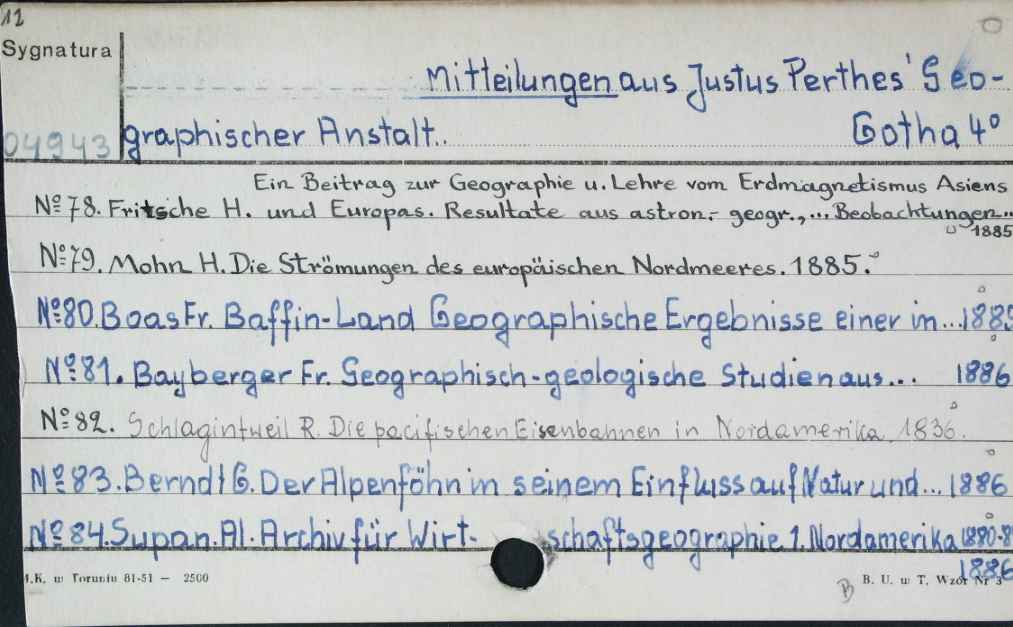 12
Sygnatura
Mitteilungen aus Justus Perthes' Geo-
04943 graphischer Anstalt.. Gotha 4°
Ein Beitrag zur Geographie u. Lehre vom Erdmagnetismus Asiens
Nº 78. Fritsche H. und Europas. Resultate aus astron.- geogr.,... Beobachtungen..
1885
Nº 79. Mohn H. Die Strömungen des europäischen Nordmeeres. 1885.
Nº 80. Boas Fr. Baffin-Land Geographische Ergebnisse einer in... 1885
Nº 81. Bayberger Fr. Geographisch-geologische Studien aus... 1886
Nº 82. Schlagintweil R. Die pacifischen Eisenbahnen in Nordamerika 1836.
Nº 83. Berndt G. Der Alpenföhn in seinem Einfluss auf Natur und... 1886
Nº 84. Supan. Al. Archiv für Wirt- schaftsgeographie 1. Nordamerika 1880-8
1886
M.K. w Toruniu 81-51 — 2500
B B. U. w T. Wzór Nr 3